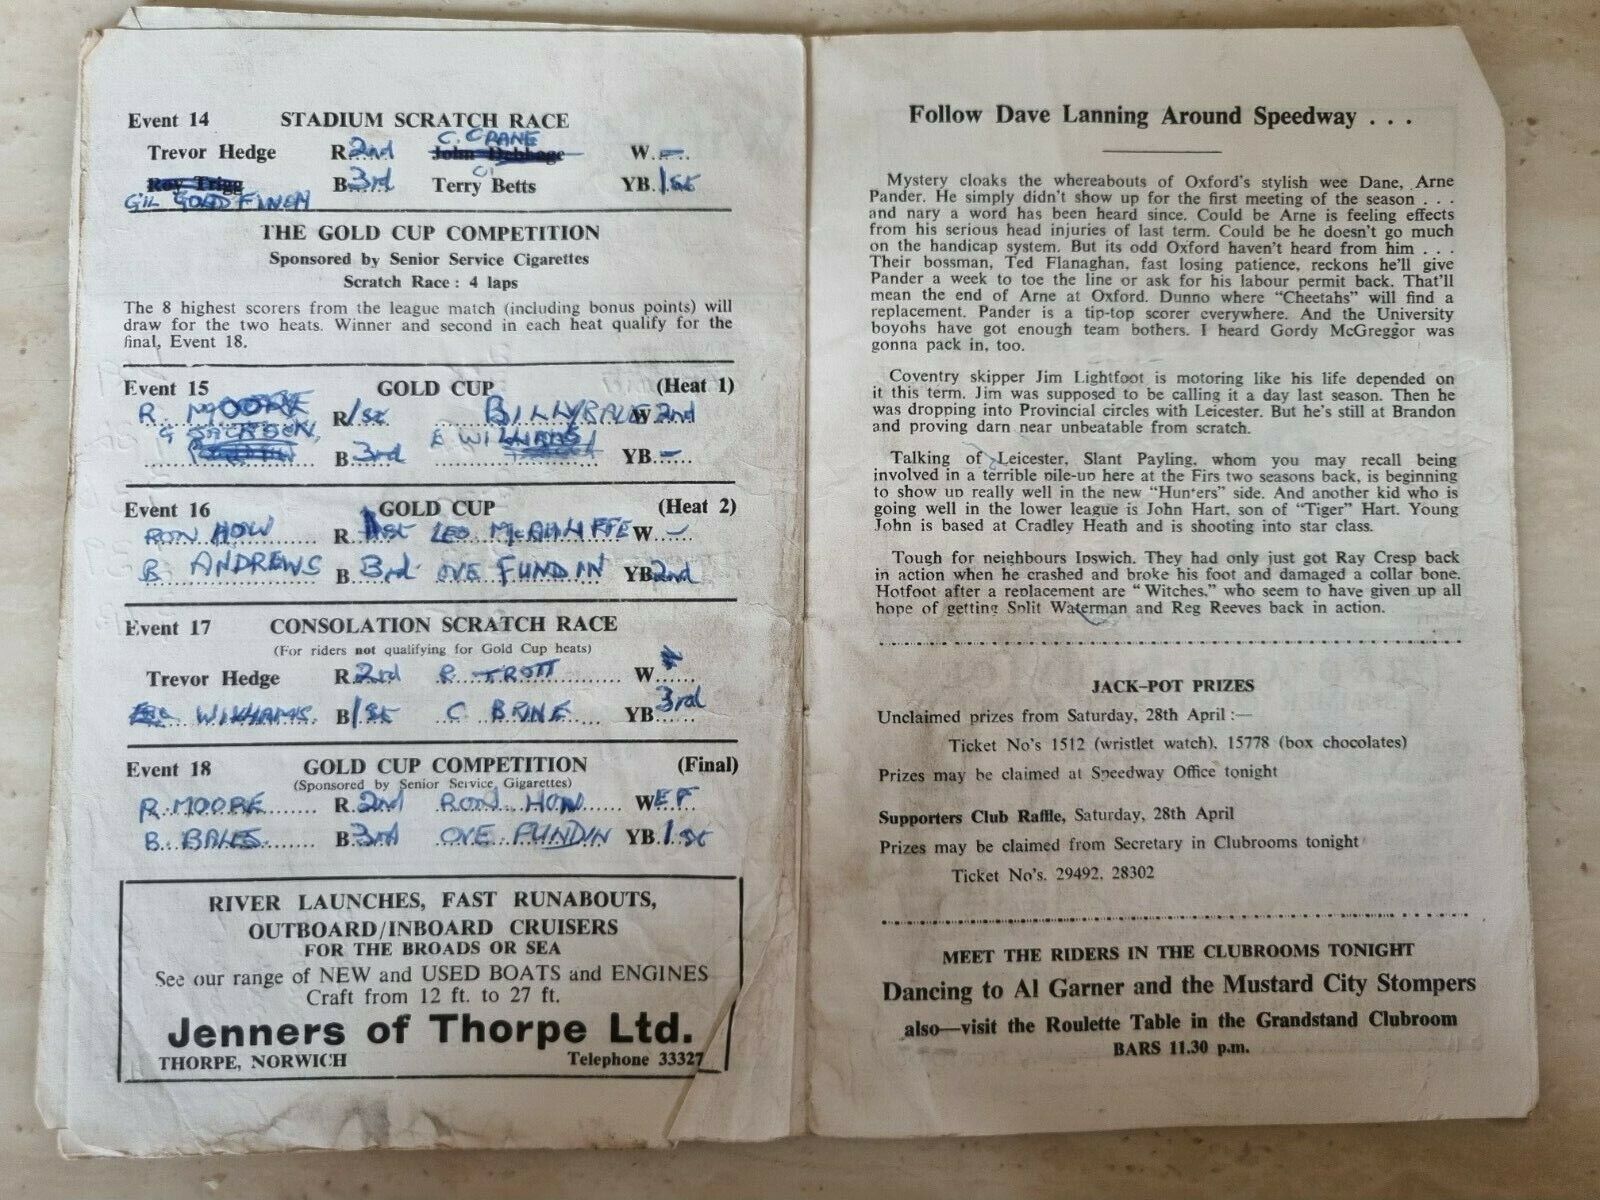 Event 14 STADIUM SCRATCH RACE
C. CRANE
Trevor Hedge R. 2nd John Debbage W. –
Roy Trigg B. 3rd Terry Betts YB. 1st
GIL GOLDFINCH
THE GOLD CUP COMPETITION
Sponsored by Senior Service Cigarettes
Scratch Race : 4 laps
The 8 highest scorers from the league match (including bonus points) will
draw for the two heats. Winner and second in each heat qualify for the
final, Event 18.
Event 15 GOLD CUP (Heat 1)
R. MOORE R 1st BILLY BALES W 2nd
B 3rd E WILLIAMS YB –
Event 16 GOLD CUP (Heat 2)
RON HOW R 1st LEO McAULIFFE W –
B ANDREWS B 3rd OVE FUNDIN YB 2nd
Event 17 CONSOLATION SCRATCH RACE
(For riders not qualifying for Gold Cup heats)
Trevor Hedge R 2nd R TROTT W
WILLIAMS B 1st C BRINE YB 3rd
Event 18 GOLD CUP COMPETITION (Final)
(Sponsored by Senior Service Gigarettes)
R. MOORE R 2nd RON HOW W EF
B. BALES B 3rd OVE FUNDIN YB 1st
RIVER LAUNCHES, FAST RUNABOUTS,
OUTBOARD/INBOARD CRUISERS
FOR THE BROADS OR SEA
See our range of NEW and USED BOATS and ENGINES
Craft from 12 ft. to 27 ft.
Jenners of Thorpe Ltd.
THORPE, NORWICH Telephone 33327
Follow Dave Lanning Around Speedway . . .
Mystery cloaks the whereabouts of Oxford's stylish wee Dane, Arne
Pander. He simply didn't show up for the first meeting of the season . . .
and nary a word has been heard since. Could be Arne is feeling effects
from his serious head injuries of last term. Could be he doesn't go much
on the handicap system. But its odd Oxford haven't heard from him . . .
Their bossman, Ted Flanaghan, fast losing patience, reckons he'll give
Pander a week to toe the line or ask for his labour permit back. That'll
mean the end of Arne at Oxford. Dunno where "Cheetahs" will find a
replacement. Pander is a tip-top scorer everywhere. And the University
boyohs have got enough team bothers. I heard Gordy McGreggor was
gonna pack in, too.
Coventry skipper Jim Lightfoot is motoring like his life depended on
it this term. Jim was supposed to be calling it a day last season. Then he
was dropping into Provincial circles with Leicester. But he's still at Brandon
and proving darn near unbeatable from scratch.
Talking of Leicester, Slant Payling, whom you may recall being
involved in a terrible pile-up here at the Firs two seasons back, is beginning
to show up really well in the new "Hunters" side. And another kid who is
going well in the lower league is John Hart, son of "Tiger" Hart. Young
John is based at Cradley Heath and is shooting into star class.
Tough for neighbours Ipswich. They had only just got Ray Cresp back
in action when he crashed and broke his foot and damaged a collar bone.
Hotfoot after a replacement are "Witches," who seem to have given up all
hope of getting Split Waterman and Reg Reeves back in action.
JACK-POT PRIZES
Unclaimed prizes from Saturday, 28th April :—
Ticket No's 1512 (wristlet watch), 15778 (box chocolates)
Prizes may be claimed at Speedway Office tonight
Supporters Club Raffle, Saturday, 28th April
Prizes may be claimed from Secretary in Clubrooms tonight
Ticket No's. 29492, 28302
MEET THE RIDERS IN THE CLUBROOMS TONIGHT
Dancing to Al Garner and the Mustard City Stompers
also—visit the Roulette Table in the Grandstand Clubroom
BARS 11.30 p.m.